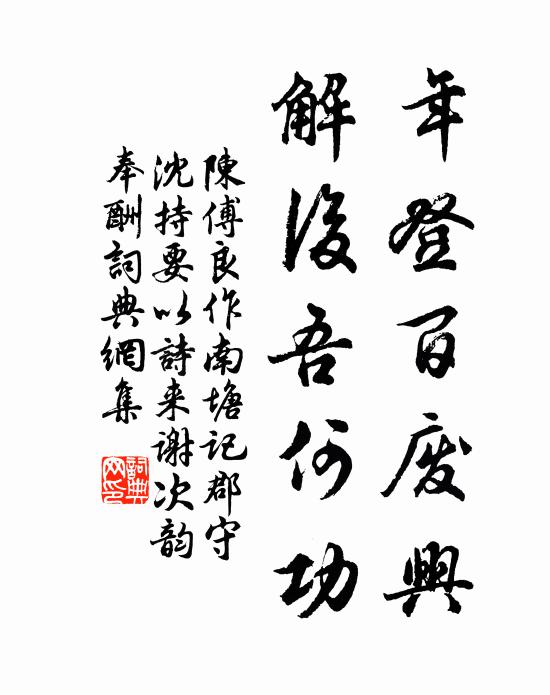 年登百废興
解後吾何功
陳傅良作南塘記郡守
沈持要以詩来謝次韵
奉酬詞典網集
詞典网印